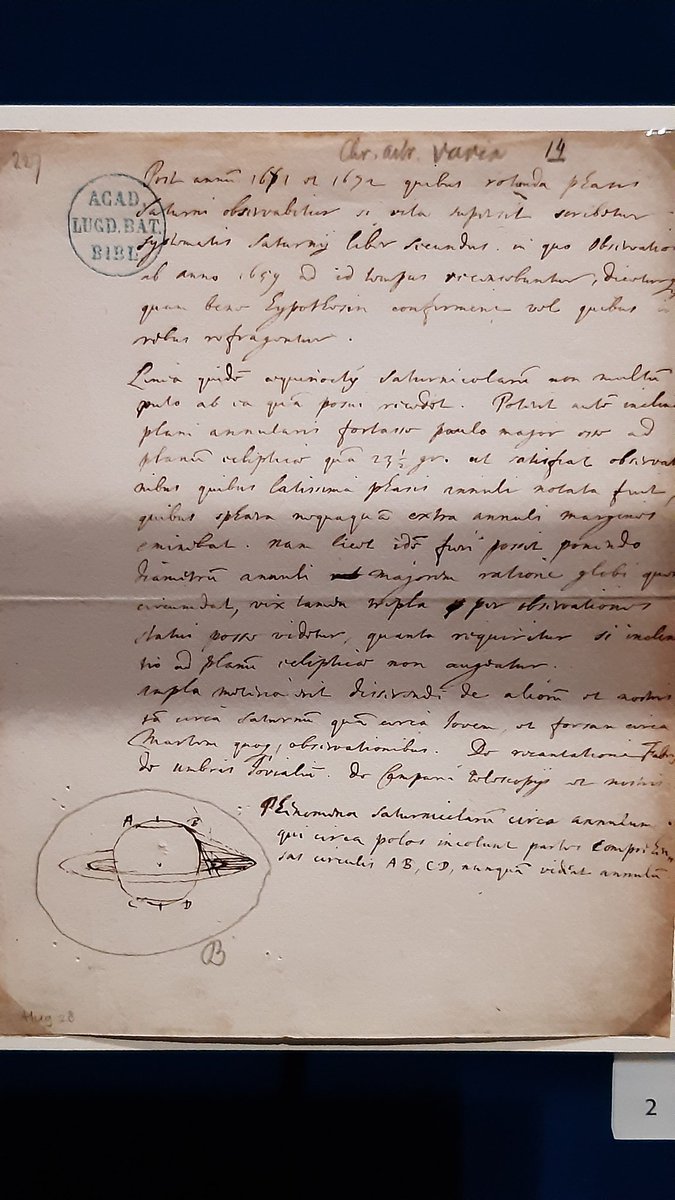 227
Chr. astr. varia 14
ACAD.
LUGD. BAT.
BIBL.
Post annũ 1671 et 1672 quibus rotunda phasis
Saturni observabitur si vita supersit scribetur
systematis Saturnij liber secundus. in quo observatio
ab anno 1659 ad id tempus recensebuntur, dicetur
quam bene hypothesin confirment vel quibus in
rebus refragentur.
Linea quidẽ aequinoctij Saturnicolarũ non multũ
puto ab ea quã posui recedet. Poterit autẽ inclina
plani annularis fortasse paulo major esse ad
planũ eclipticae quã 23½ gr. ut satisfiat observat
nibus quibus latissima phasis annuli notata fuit,
quibus sphaera nequaquã extra annuli margines
eminebat. nam licet idẽ fieri possit ponendo
diametrũ annuli majorem ratione globi quem
circumdat, vix tamen tripla per observationes
statui posse videtur, quanta requiritur si inclin
tio ad planũ eclipticae non augeatur.
Ampla materia erit disserendi de aliorũ et nostris
tã circa Saturnũ quã circa Iovem, et forsan circa
Martem quoq, observationibus. De recantatione Fabri
de umbris Jovialiũ. de Campani telescopijs et nostris.
Phaenomena Saturnicolarũ circa annulum.
qui circa polos incolunt partes comprehen
sas circulis AB, CD, nunquã vident annulũ
A B
C D
B
Hug 28
2